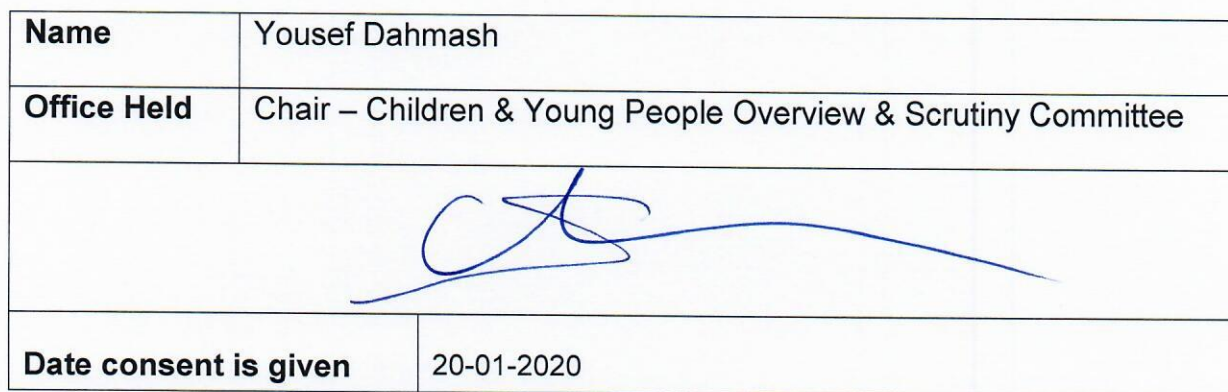 Name Yousef Dahmash
Office Held Chair – Children & Young People Overview & Scrutiny Committee
Date consent is given 20-01-2020